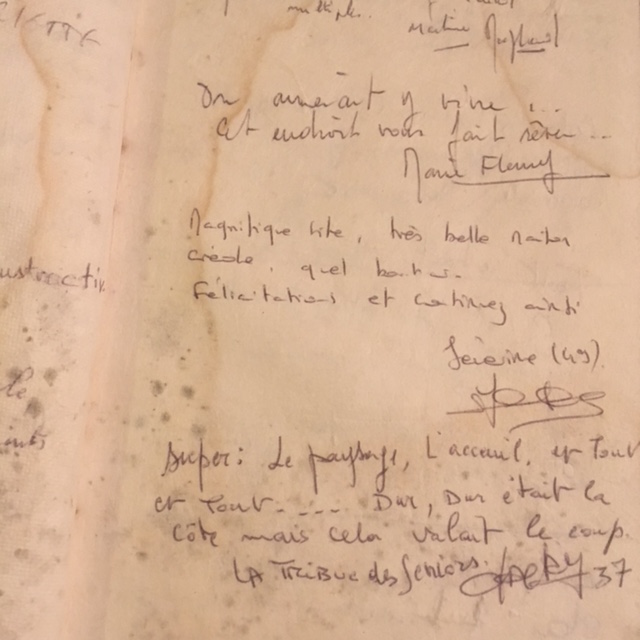 multiple..
On aimerait y vivre ...
cet endroit vous fait rêver ...
Marie Fleury
Magnifique site, très belle maison
créole, quel bonheur.
Félicitations et continuez ainsi
Séverine (49).
Super: Le paysage, L'acceuil, et Tout
et Tout----- Dur, Dur était la
côte mais cela valait le coup.
LA TRIBUE des Seniors. 37
ustructi
le